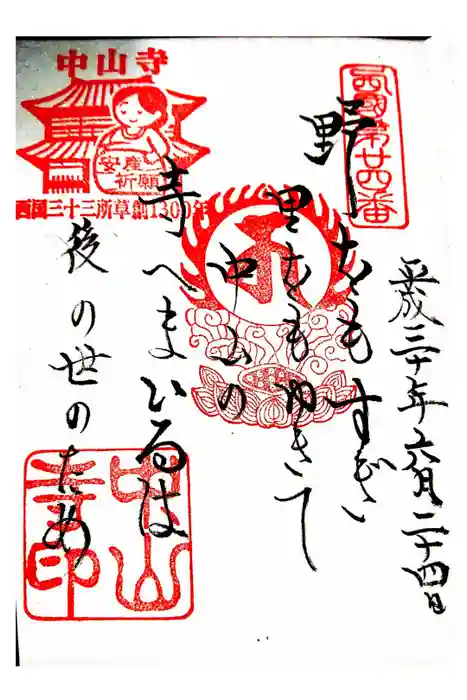 平成三十年六月二十四日
西國第廿四番
野をもすぎ
里をもゆきて
中山の
寺へまいるは
後の世のため
中山寺
安産
祈願
西国三十三所草創1300年
中山
寺印